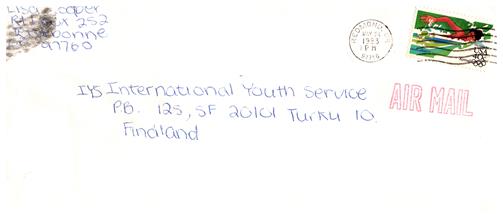 Lisa Cooper
252
Terrebonne
97760
REDMOND, OR
1983
PM
97756
IYS International Youth Service
P.B. 125, SF 20101 Turku 10.
Findland
AIR MAIL